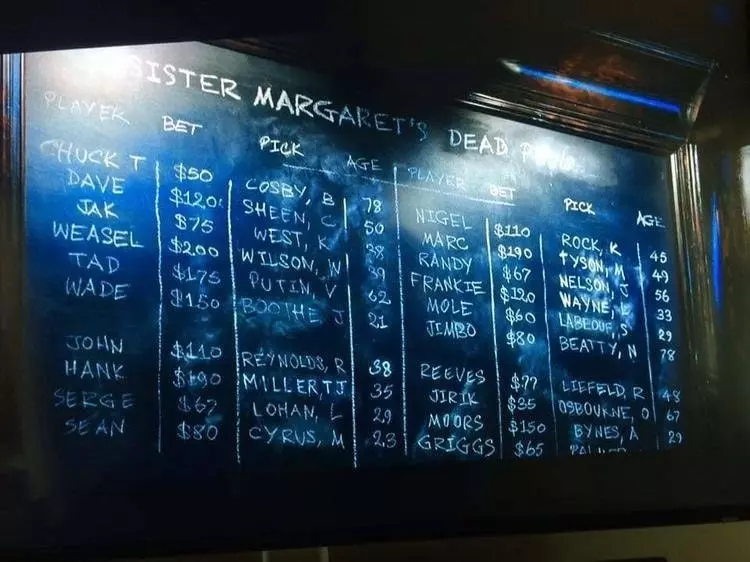 SISTER MARGARET'S DEAD
PLAYER BET PICK AGE
CHUCK T $50 COSBY, B 78
DAVE $120 SHEEN, C 50
JAK $75 WEST, K 38
WEASEL $200 WILSON, W 39
TAD $175 PUTIN, V 62
WADE $150 BOOTHE J 21
JOHN $110 REYNOLDS, R 38
HANK $190 MILLER TJ 35
SERGE $67 LOHAN, L 29
SEAN $80 CYRUS, M 23
PLAYER BET PICK AGE
NIGEL $110 ROCK, K 45
MARC $190 TYSON, M 49
RANDY $67 NELSON, J 56
FRANKIE $120 WAYNE, L 33
MOLE $60 LABEOUF, S 29
JIMBO $80 BEATTY, N 78
REEVES $77 LIEFELD, R 48
JIRIK $35 OSBOURNE, O 67
MOORS $150 BYNES, A 29
GRIGGS $65